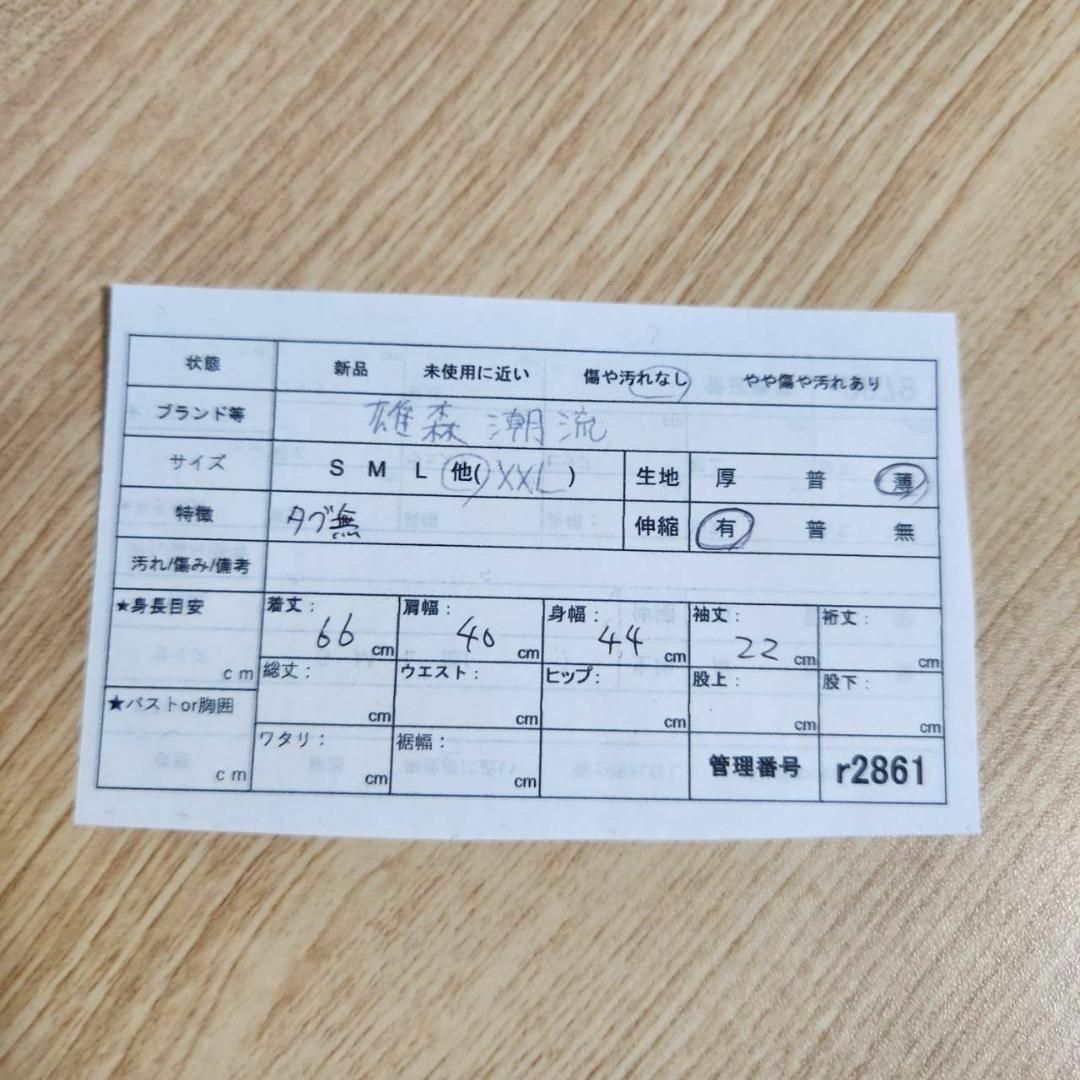 状態 新品 未使用に近い 傷や汚れなし やや傷や汚れあり
ブランド等 雄森潮流
サイズ S M L 他(XXL) 生地 厚 普 薄
特徴 タグ無 伸縮 有 普 無
汚れ/傷み/備考
★身長目安 cm
着丈: 66 cm 肩幅: 40 cm 身幅: 44 cm 袖丈: 22 cm 裄丈: cm
総丈: cm ウエスト: cm ヒップ: cm 股上: cm 股下: cm
★バストor胸囲 cm
ワタリ: cm 裾幅: cm 管理番号 r2861